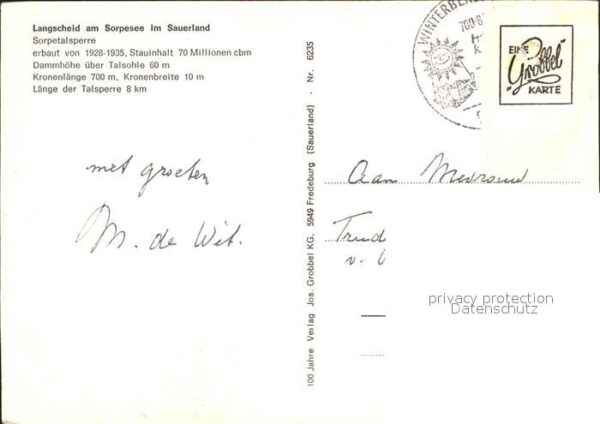 Langscheid am Sorpesee im Sauerland
Sorpetalsperre
erbaut von 1928-1935, Stauinhalt 70 Millionen cbm
Dammhöhe über Talsohle 60 m
Kronenlänge 700 m, Kronenbreite 10 m
Länge der Talsperre 8 km
met groeten
M. de Wit.
100 Jahre Verlag Jos. Grobbel KG. 5949 Fredeburg (Sauerland) - Nr. 6235
WINTERBERG
EINE
Grobbel
KARTE
Aan Mevrouw
Trud
v. 
privacy protection
Datenschutz